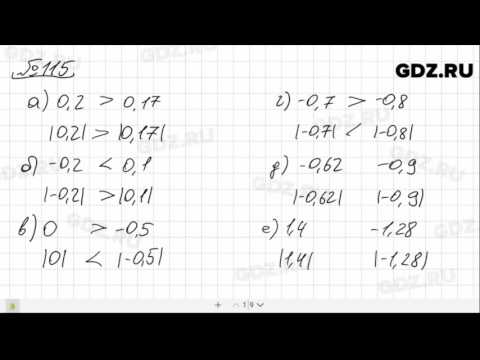 №115
GDZ.RU
а) 0,2 > 0,17
|0,2| > |0,17|
б) -0,2 < 0,1
|-0,2| > |0,1|
в) 0 > -0,5
|0| < |-0,5|
г) -0,7 > -0,8
|-0,7| < |-0,8|
д) -0,62 -0,9
|-0,62| |-0,9|
е) 1,4 -1,28
|1,4| |-1,28|
GDZ.RU
GDZ.RU
GDZ.RU
GDZ.RU
1 9